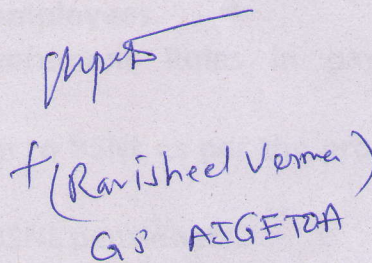 (Ravisheel Verma)
GS AIGETOA